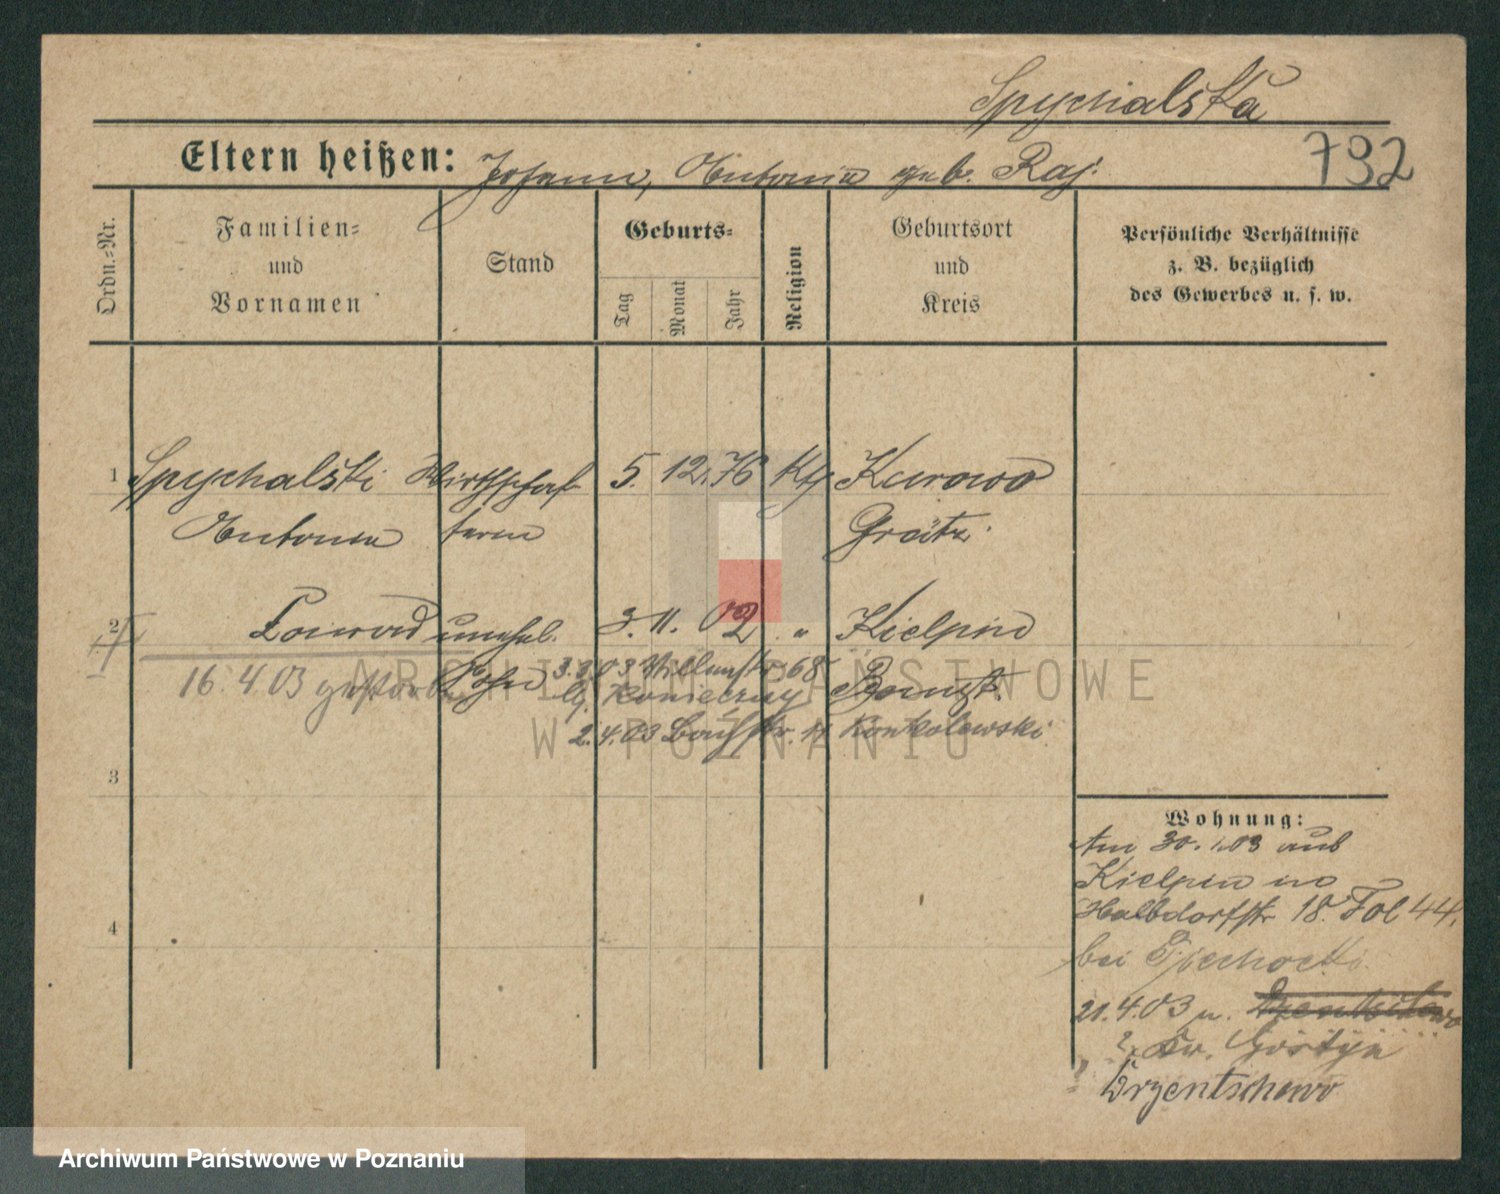 Spychalska
792
Eltern heißen: Johann, Antonia geb. Raj.
Ordn.=Nr.
Familien=
und
Vornamen
Stand
Geburts=
Tag
Monat
Jahr
Religion
Geburtsort
und
Kreis
Persönliche Verhältnisse
z. B. bezüglich
des Gewerbes u. s. w.
1 Spychalski Wirthschaf- 5. 12. 76 Kth Kurowo
Antonia terin Grätz.
2 Conrad unehel. 3. 11. 02 " Kielpin
Sohn Bomst.
16.4.03 gestorben
3.3.03 68
bei Konieczny
2.4.03 17 Konkolewski
3
4
Wohnung:
Am 30.1.03 aus
Kielpin
Halbdorfstr 18. Fol 44.
bei
21.4.03 n.
Kr. Gostyn
Brzentschewo
ARCHIWUM PAŃSTWOWE
W POZNANIU
Archiwum Państwowe w Poznaniu